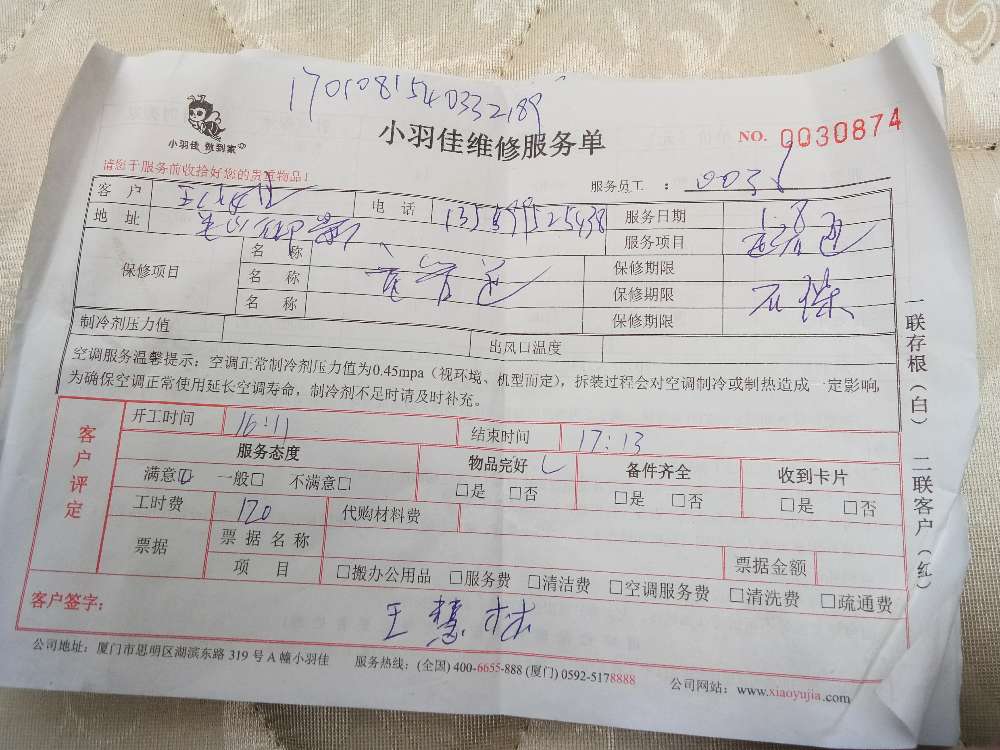 1701081540332189
小羽佳 做到家
小羽佳维修服务单
NO. 0030874
请您于服务前收拾好您的贵重物品！
服务员工 ：
客 户 电 话 服务日期 1.8
地 址 服务项目
保修项目 名 称 保修期限
名 称 保修期限
名 称 保修期限
制冷剂压力值 出风口温度
空调服务温馨提示：空调正常制冷剂压力值为0.45mpa（视环境、机型而定），拆装过程会对空调制冷或制热造成一定影响，
为确保空调正常使用延长空调寿命，制冷剂不足时请及时补充。
客户评定
开工时间 16:11 结束时间 17:13
服务态度 物品完好 备件齐全 收到卡片
满意☑ 一般□ 不满意□ □是 □否 □是 □否 □是 □否
工时费 120 代购材料费
票据 票据名称 票据金额
项 目 □搬办公用品 □服务费 □清洁费 □空调服务费 □清洗费 □疏通费
客户签字： 王慧林
公司地址：厦门市思明区湖滨东路 319 号 A 幢小羽佳 服务热线：(全国) 400-6655-888 (厦门) 0592-5178888 公司网站：www.xiaoyujia.com
一联存根（白） 二联客户（红）